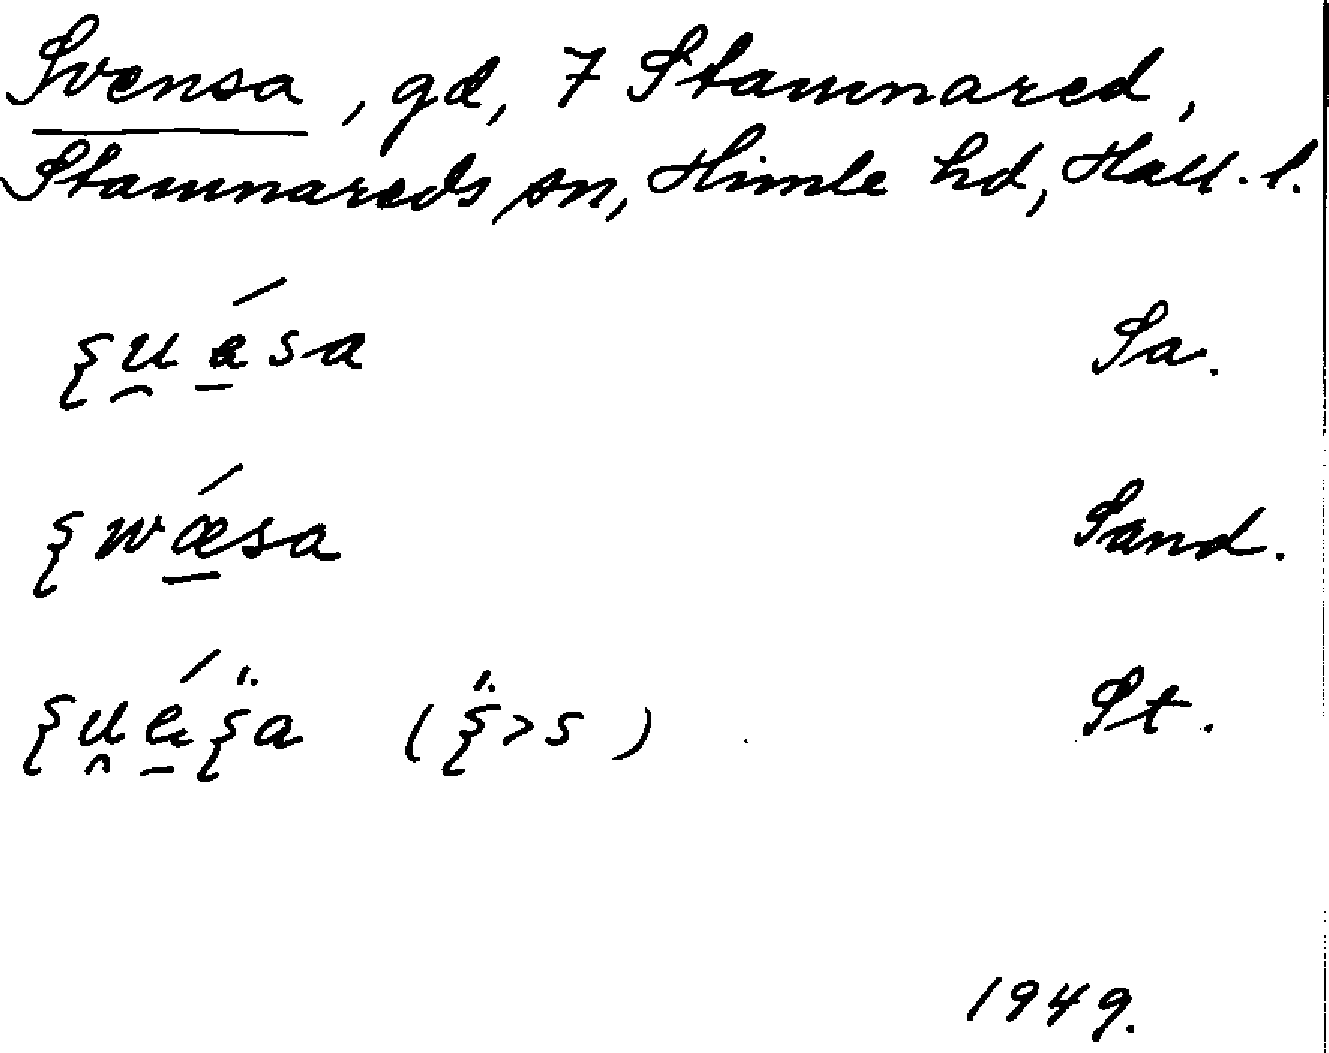 Svensa, gd, 7 Stamnared,
Stamnareds sn, Himle hd, Hall. l.
Sa.
Sand.
St.
1949.